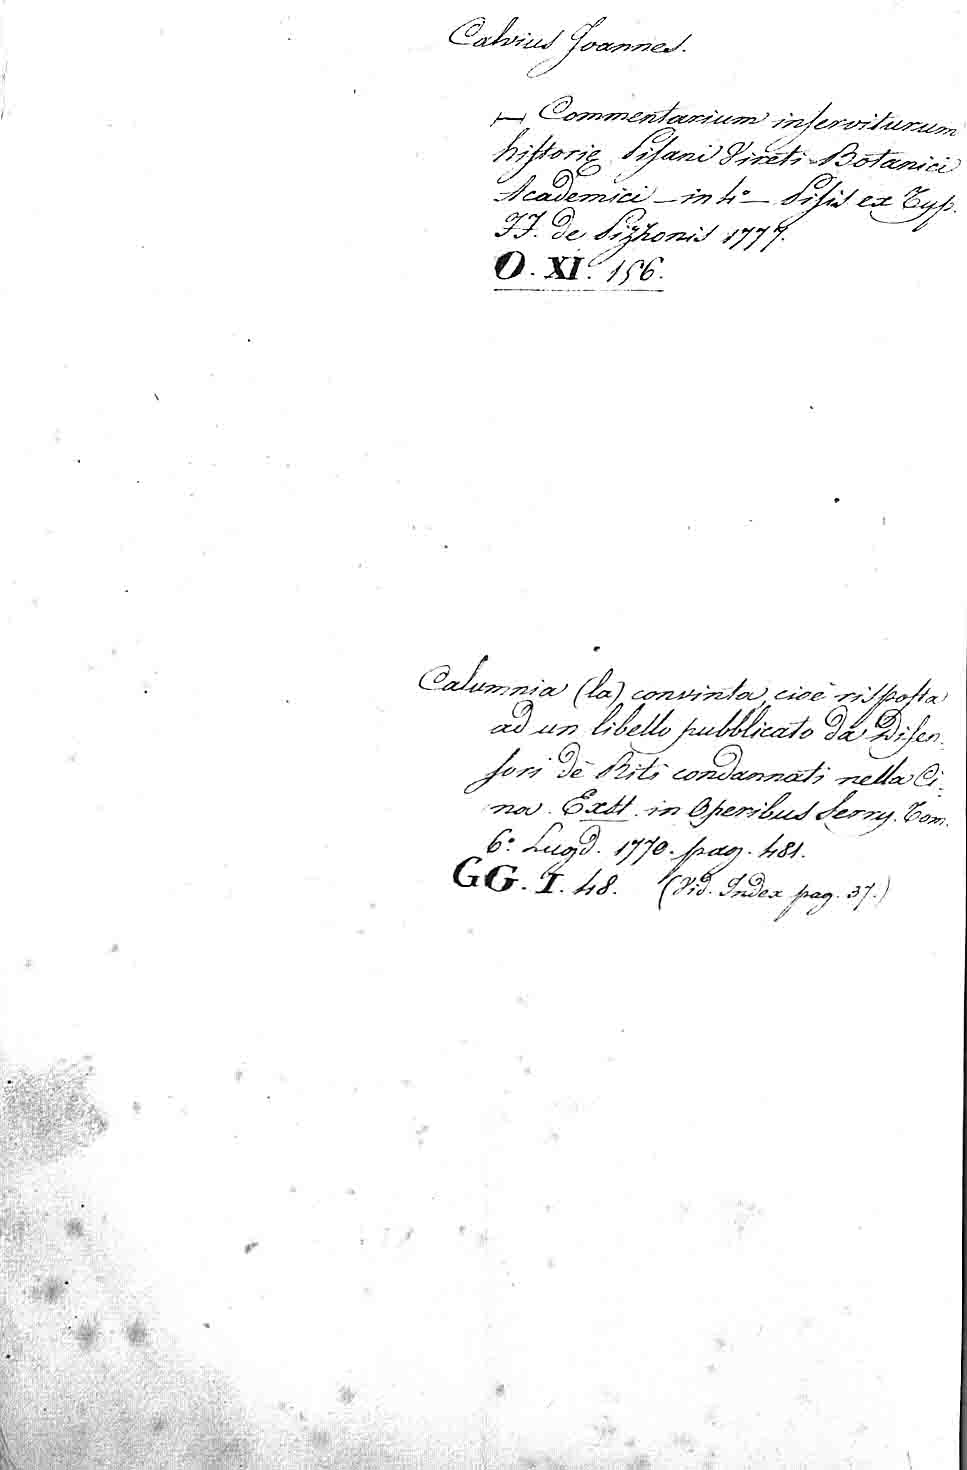 Calvius Joannes.
— Commentarium inserviturum
historię Pisani Vireti Botanici
Academici – in 4° – Pisis ex Typ.
FF. de Pizzhonis 1777.
O. XI. 156.
Calumnia (la) convinta, cioè risposta
ad un libello pubblicato da Difen-
sori dè Riti condannati nella Ci-
na. Exst. in Operibus Serry. Tom.
6° Lugd. 1770. pag. 481.
GG. I. 48. (Vid. Index pag. 37.)